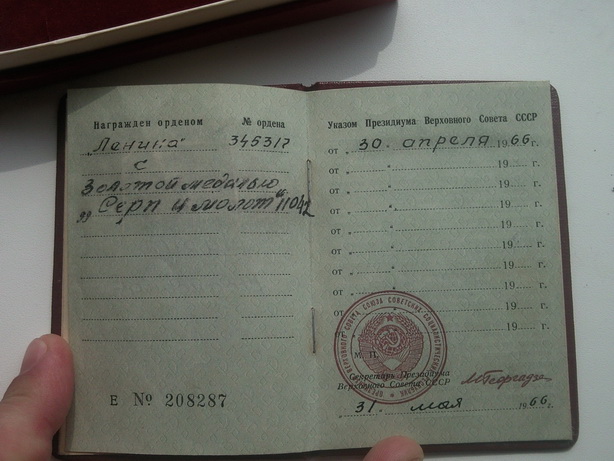 Награжден орденом № ордена
„Ленина" 345317
с
Золотой медалью
„Серп и молот" 11042
Е № 208287
Указом Президиума Верховного Совета СССР
от „ 30. апреля 1966 г.
от „ " 19 г.
от „ " 19 г.
от „ " 19 г.
от „ " 19 г.
от „ " 19 г.
от „ " 19 г.
от „ " 19 г.
от „ " 19 г.
М. П.
Секретарь Президиума
Верховного Совета СССР
М Георгадзе
„ 31. мая 1966 г.